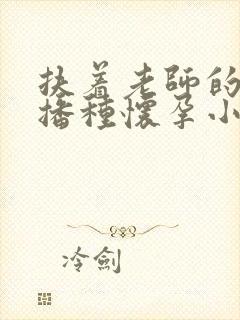 扶着老师的
播種懷孕小
冷劍